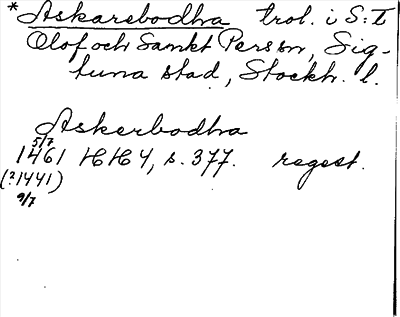 *Askarsbodha trol. i S:t
Olof och Sankt Persson, Sig-
tuna stad, Stockh. l.
Askerbodha
5/7
1461 HH 4, s. 377. regest.
(?1441)
9/7